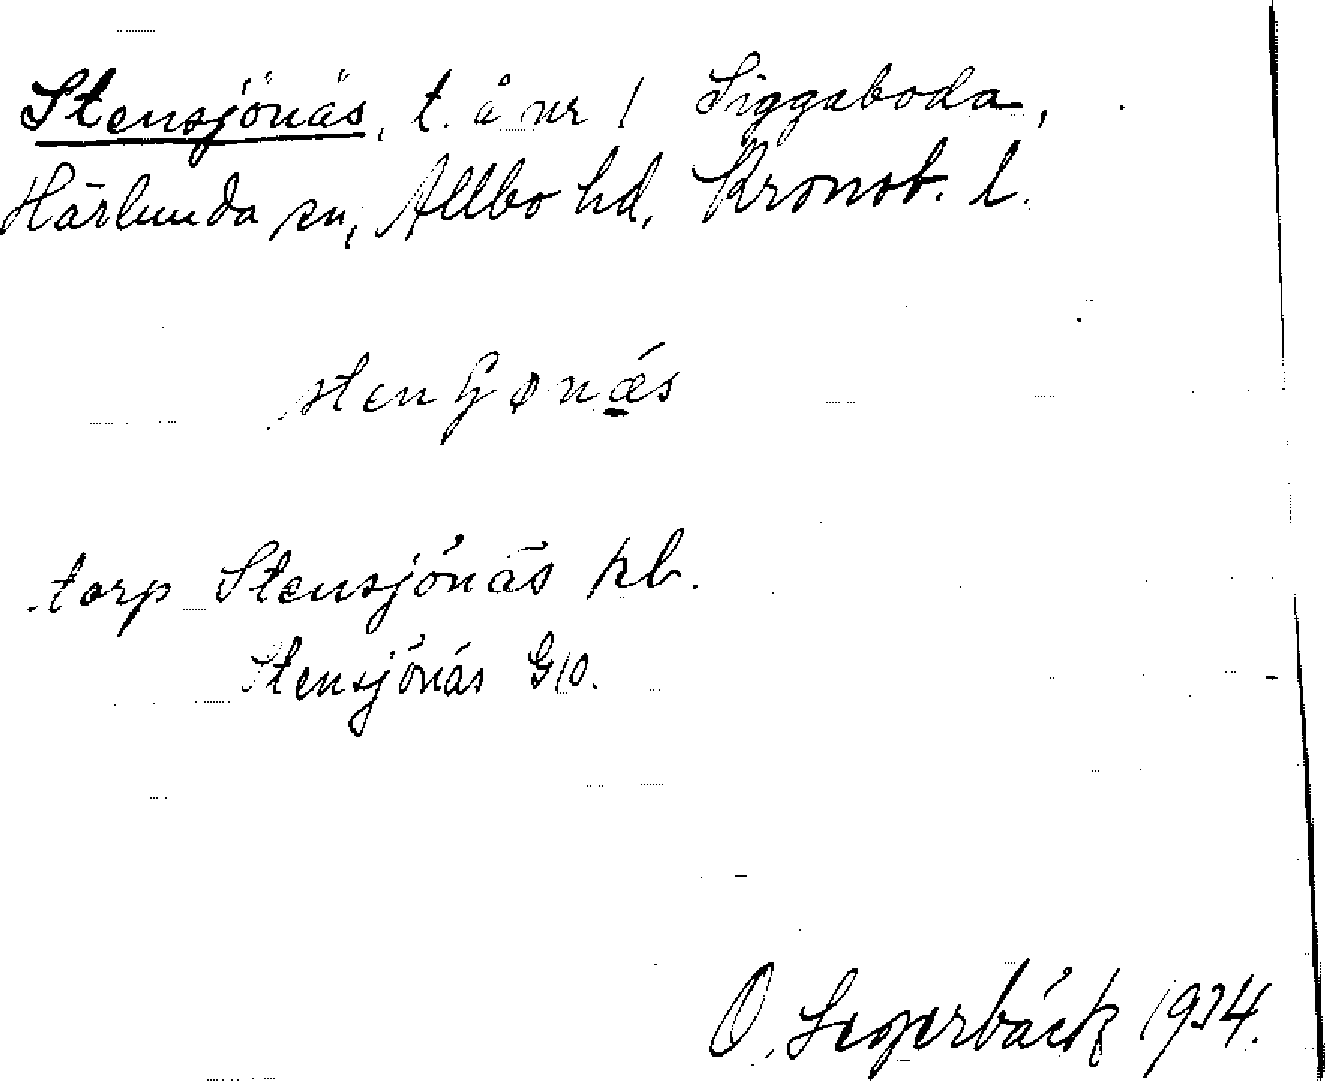 Stensjönäs, t. å nr 1 Siggaboda,
Härlunda sn, Allbo hd, Kronob. l.
torp Stensjönäs kb.
Stensjönäs G10.
O. Segerbäck 1934.